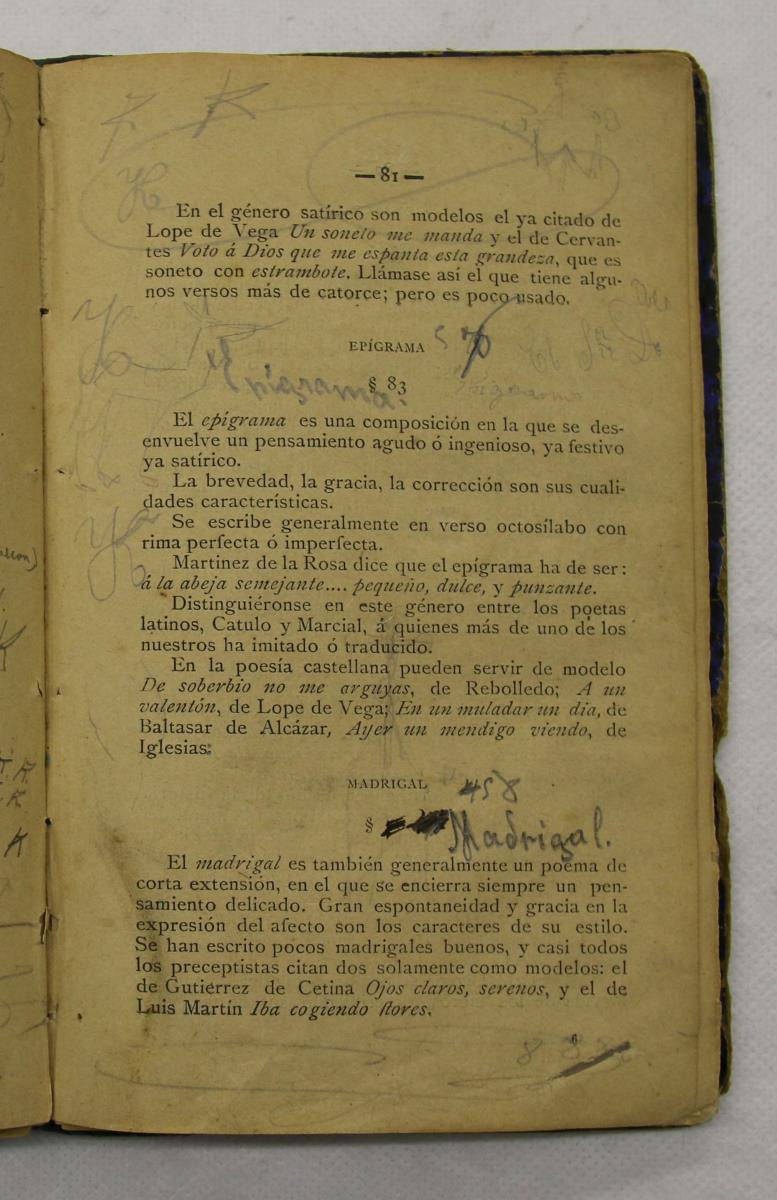 — 81 —
En el género satírico son modelos el ya citado de
Lope de Vega Un soneto me manda y el de Cervan-
tes Voto á Dios que me espanta esta grandeza, que es
soneto con estrambote. Llámase así el que tiene algu-
nos versos más de catorce; pero es poco usado.
EPÍGRAMA
§ 83
Epígrama.
El epígrama es una composición en la que se des-
envuelve un pensamiento agudo ó ingenioso, ya festivo
ya satírico.
La brevedad, la gracia, la corrección son sus cuali-
dades características.
Se escribe generalmente en verso octosílabo con
rima perfecta ó imperfecta.
Martinez de la Rosa dice que el epígrama ha de ser:
á la abeja semejante.... pequeño, dulce, y punzante.
Distinguiéronse en este género entre los poetas
latinos, Catulo y Marcial, á quienes más de uno de los
nuestros ha imitado ó traducido.
En la poesía castellana pueden servir de modelo
De soberbio no me arguyas, de Rebolledo; A un
valentón, de Lope de Vega; En un muladar un dia, de
Baltasar de Alcázar, Ayer un mendigo viendo, de
Iglesias:
MADRIGAL 458
§ Madrigal.
El madrigal es también generalmente un poema de
corta extensión, en el que se encierra siempre un pen-
samiento delicado. Gran espontaneidad y gracia en la
expresión del afecto son los caracteres de su estilo.
Se han escrito pocos madrigales buenos, y casi todos
los preceptistas citan dos solamente como modelos: el
de Gutierrez de Cetina Ojos claros, serenos, y el de
Luis Martín Iba cogiendo flores.
6